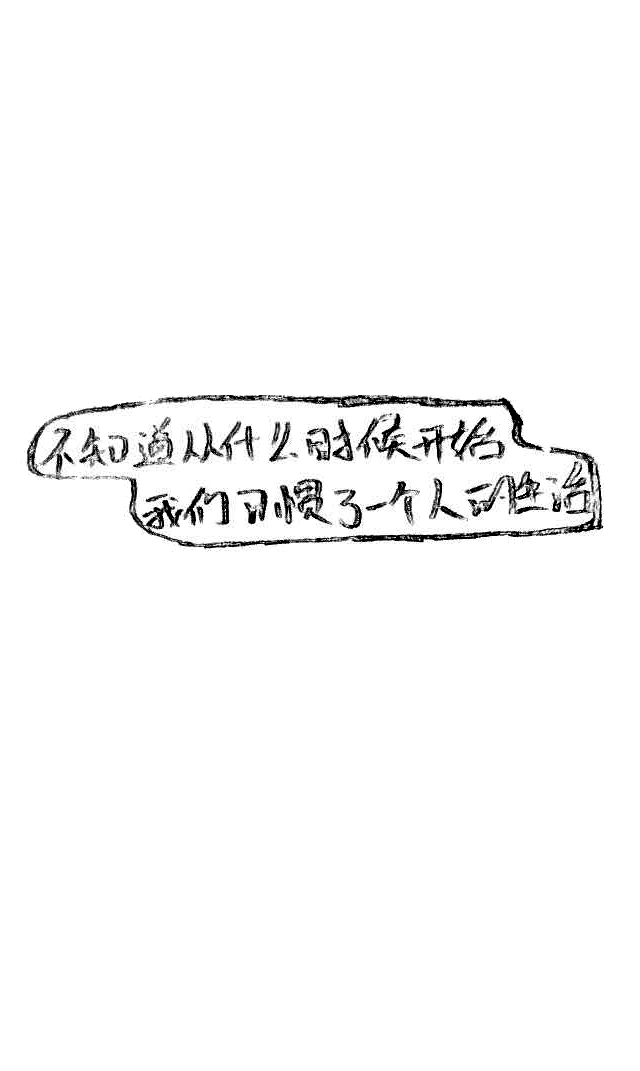 不知道从什么时候开始
我们习惯了一个人的生活